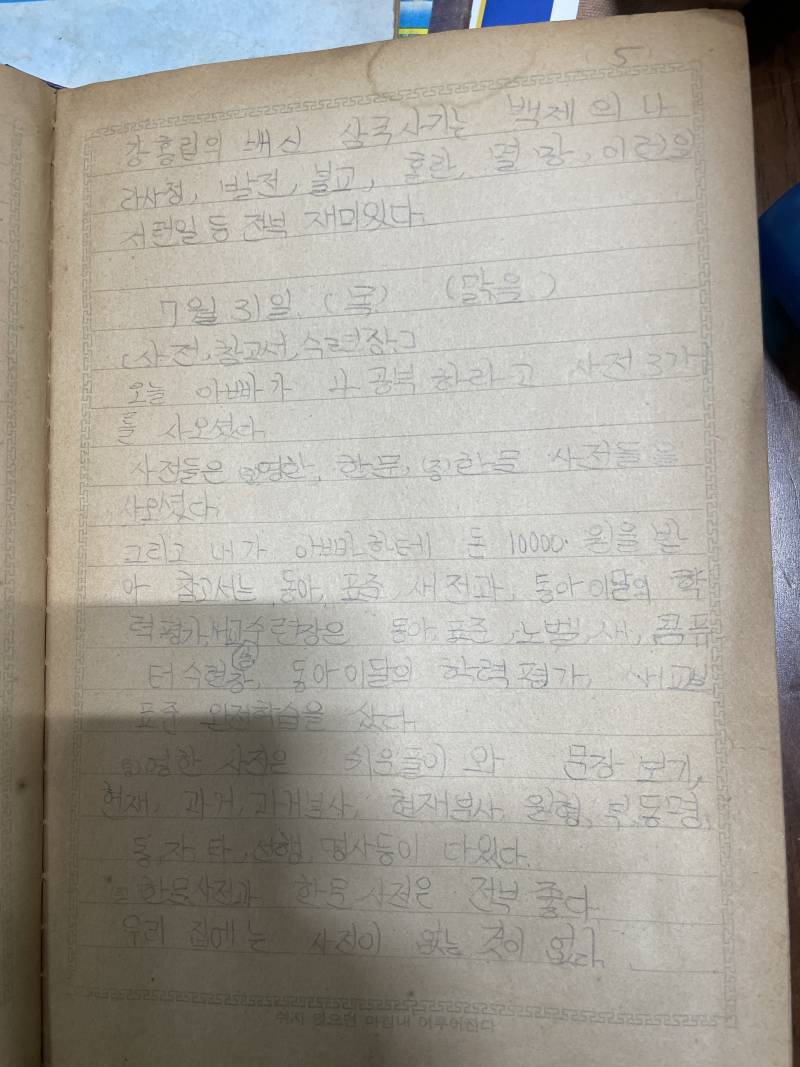 5
강홍립의 배신 삼국사기는 백제의 나
라사정, 발전, 불교, 혼란, 멸망,
서런일등 전부 재미있다.
7월 31일 (목) (맑음)
(사전, 참고서, 수련장)
오늘 아빠가 나 공부하라고 사전 3가
를 사오셨다.
사전들은 영한, 한문, 한글 사전들을
사오셨다.
그리고 내가 아빠한테 돈 10000원을 받
아 참고서는 동아, 표준, 새전과, 동아이달의 학
력평가, 수련장은 동아, 표준, 노벨, 새, 콤퓨
터수련장, 동아이달의 학력평가,
표준 완전학습을 샀다.
영한 사전은 와 문장 보기,
현재, 과거, 과거분사, 현재분사, 원형,
동, 자, 타, 명사등이 다있다.
사전과 사전은 전부 좋다.
우리 집에는 사전이 없는 것이 없다.
쉬지 않으면 마침내 이루어진다